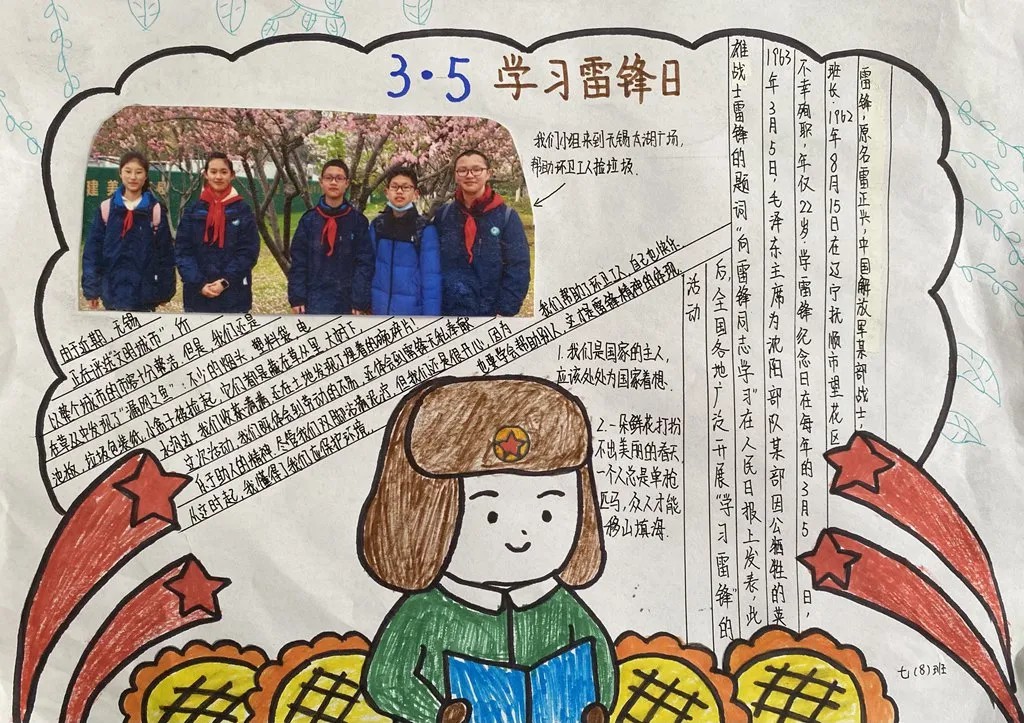 3·5 学习雷锋日
我们小组来到无锡太湖广场,
帮助环卫工人捡垃圾.
建 美
由于近期,无锡
正在评选文明城市",所
以整个城市的市容十分整洁.但是,我们还是
在草丛中发现了"漏网之鱼":不少的烟头、塑料袋、电
池板、垃圾包装纸、小盒子被捡起,它们都是藏在草丛里、大树下、
水沟边.我们收获满满,还在土地发现了埋着的碎片!
这次活动,我们既体会到劳动的不易,又体会到雷锋无私奉献,
乐于助人的精神.尽管我们脚沾满泥泞,但我们还是很开心.因为我们帮助了环卫工人,自己也快乐.
从这时起,我懂得了我们应保护环境,也要学会帮助别人,这才是雷锋精神的体现.
雷锋,原名雷正兴,中国解放军某部战士,
班长.1962年8月15日在辽宁抚顺市望花区
不幸殉职,年仅22岁.学雷锋纪念日在每年的3月5日,
1963年3月5日,毛泽东主席为沈阳部队某部因公牺牲的英
雄战士雷锋的题词"向雷锋同志学习"在人民日报上发表,此
后,全国各地广泛开展"学习雷锋"的
活动
1.我们是国家的主人,
应该处处为国家着想.
2.一朵鲜花打扮
不出美丽的春天,
一个人总是单枪
匹马,众人才能
移山填海.
七(8)班